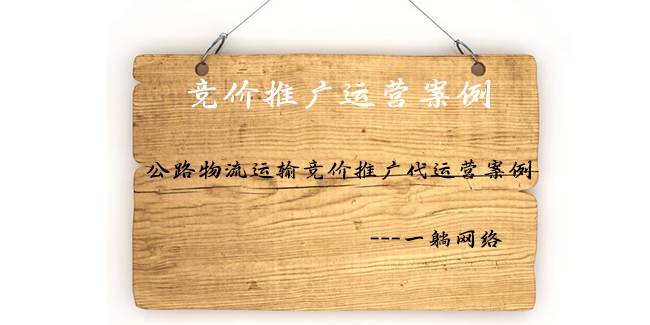 竞价推广运营案例
公路物流运输竞价推广代运营案例
---一躺网络